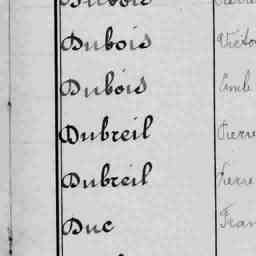 Dubois
Dubois Victo
Dubois Emile
Dubreil Pierre
Dubreil Pierre
Duc Fran